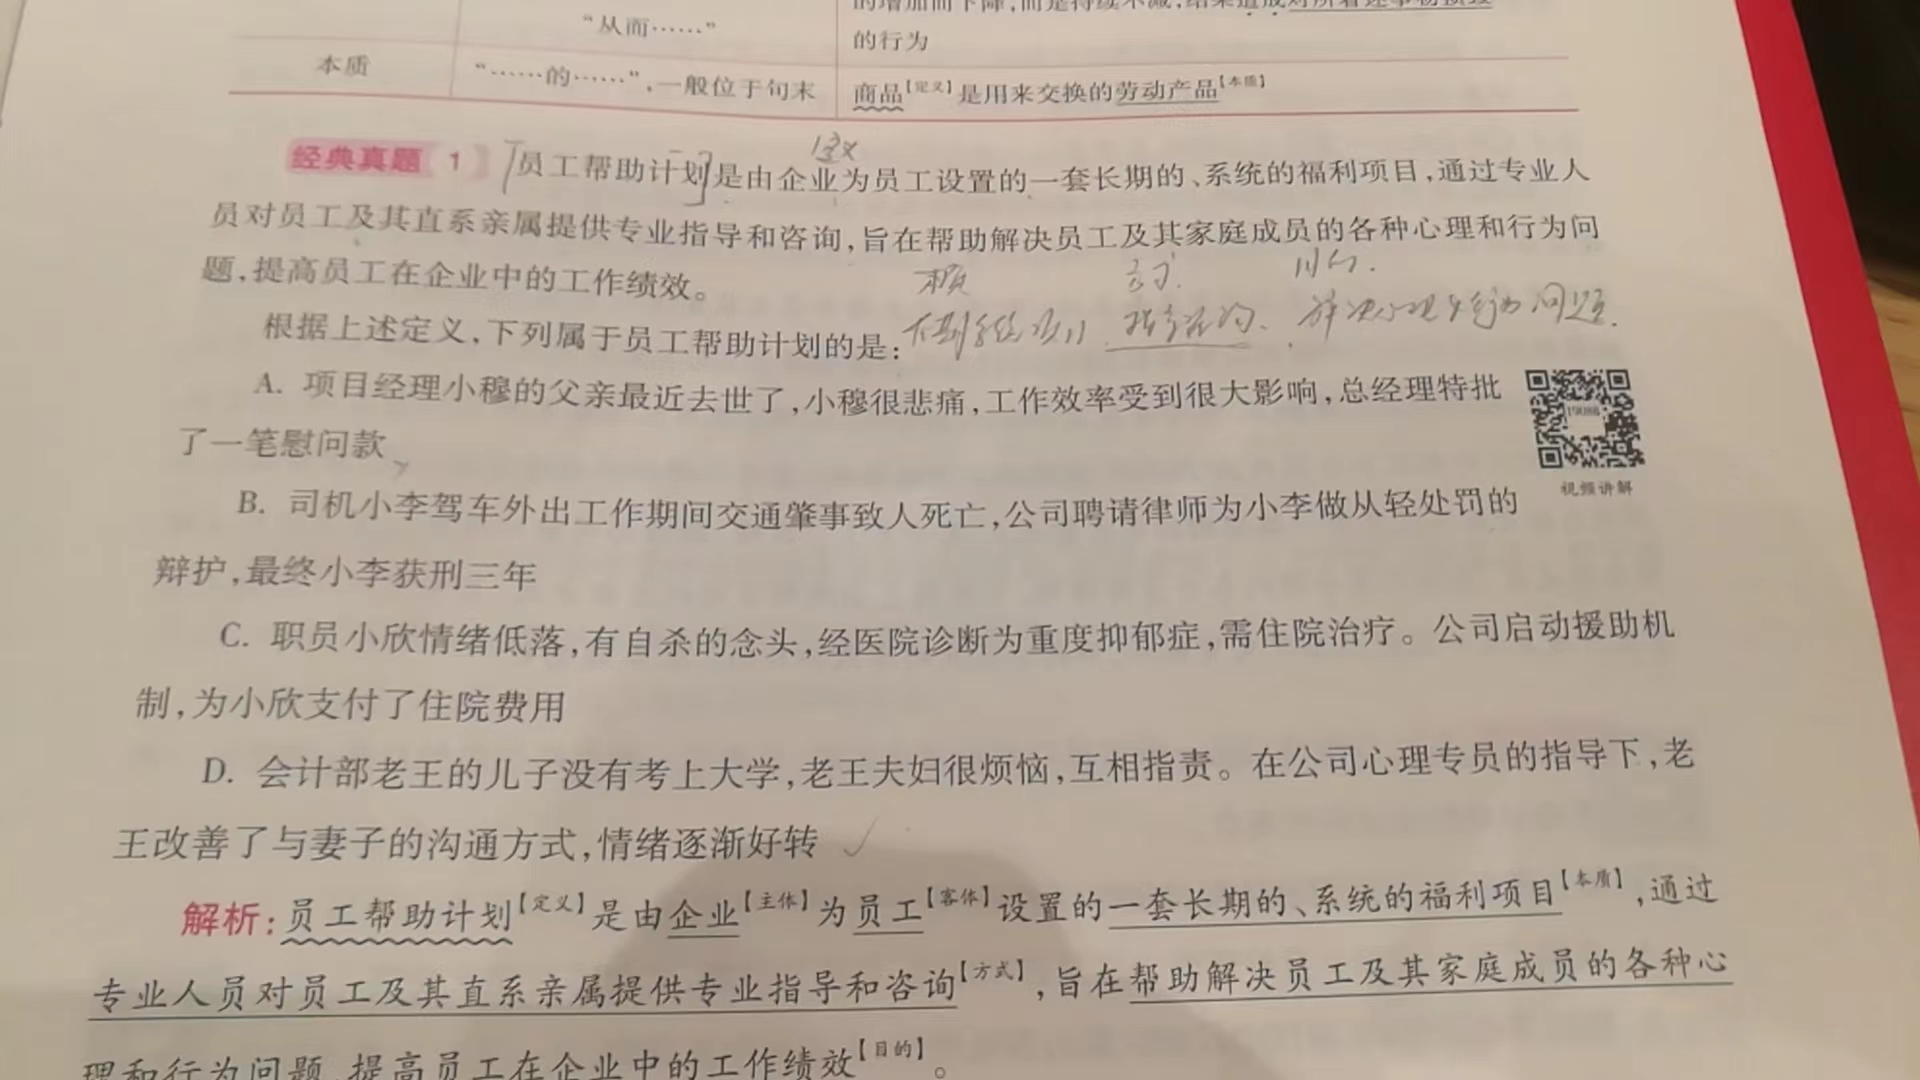 “从而……”
的行为
本质
“……的……”,一般位于句末
商品【定义】是用来交换的劳动产品【本质】
经典真题 1 员工帮助计划是由企业为员工设置的一套长期的、系统的福利项目,通过专业人
员对员工及其直系亲属提供专业指导和咨询,旨在帮助解决员工及其家庭成员的各种心理和行为问
题,提高员工在企业中的工作绩效。
根据上述定义,下列属于员工帮助计划的是:
A. 项目经理小穆的父亲最近去世了,小穆很悲痛,工作效率受到很大影响,总经理特批
了一笔慰问款
视频讲解
B. 司机小李驾车外出工作期间交通肇事致人死亡,公司聘请律师为小李做从轻处罚的
辩护,最终小李获刑三年
C. 职员小欣情绪低落,有自杀的念头,经医院诊断为重度抑郁症,需住院治疗。公司启动援助机
制,为小欣支付了住院费用
D. 会计部老王的儿子没有考上大学,老王夫妇很烦恼,互相指责。在公司心理专员的指导下,老
王改善了与妻子的沟通方式,情绪逐渐好转
解析:员工帮助计划【定义】是由企业【主体】为员工【客体】设置的一套长期的、系统的福利项目【本质】,通过
专业人员对员工及其直系亲属提供专业指导和咨询【方式】,旨在帮助解决员工及其家庭成员的各种心
理和行为问题,提高员工在企业中的工作绩效【目的】。